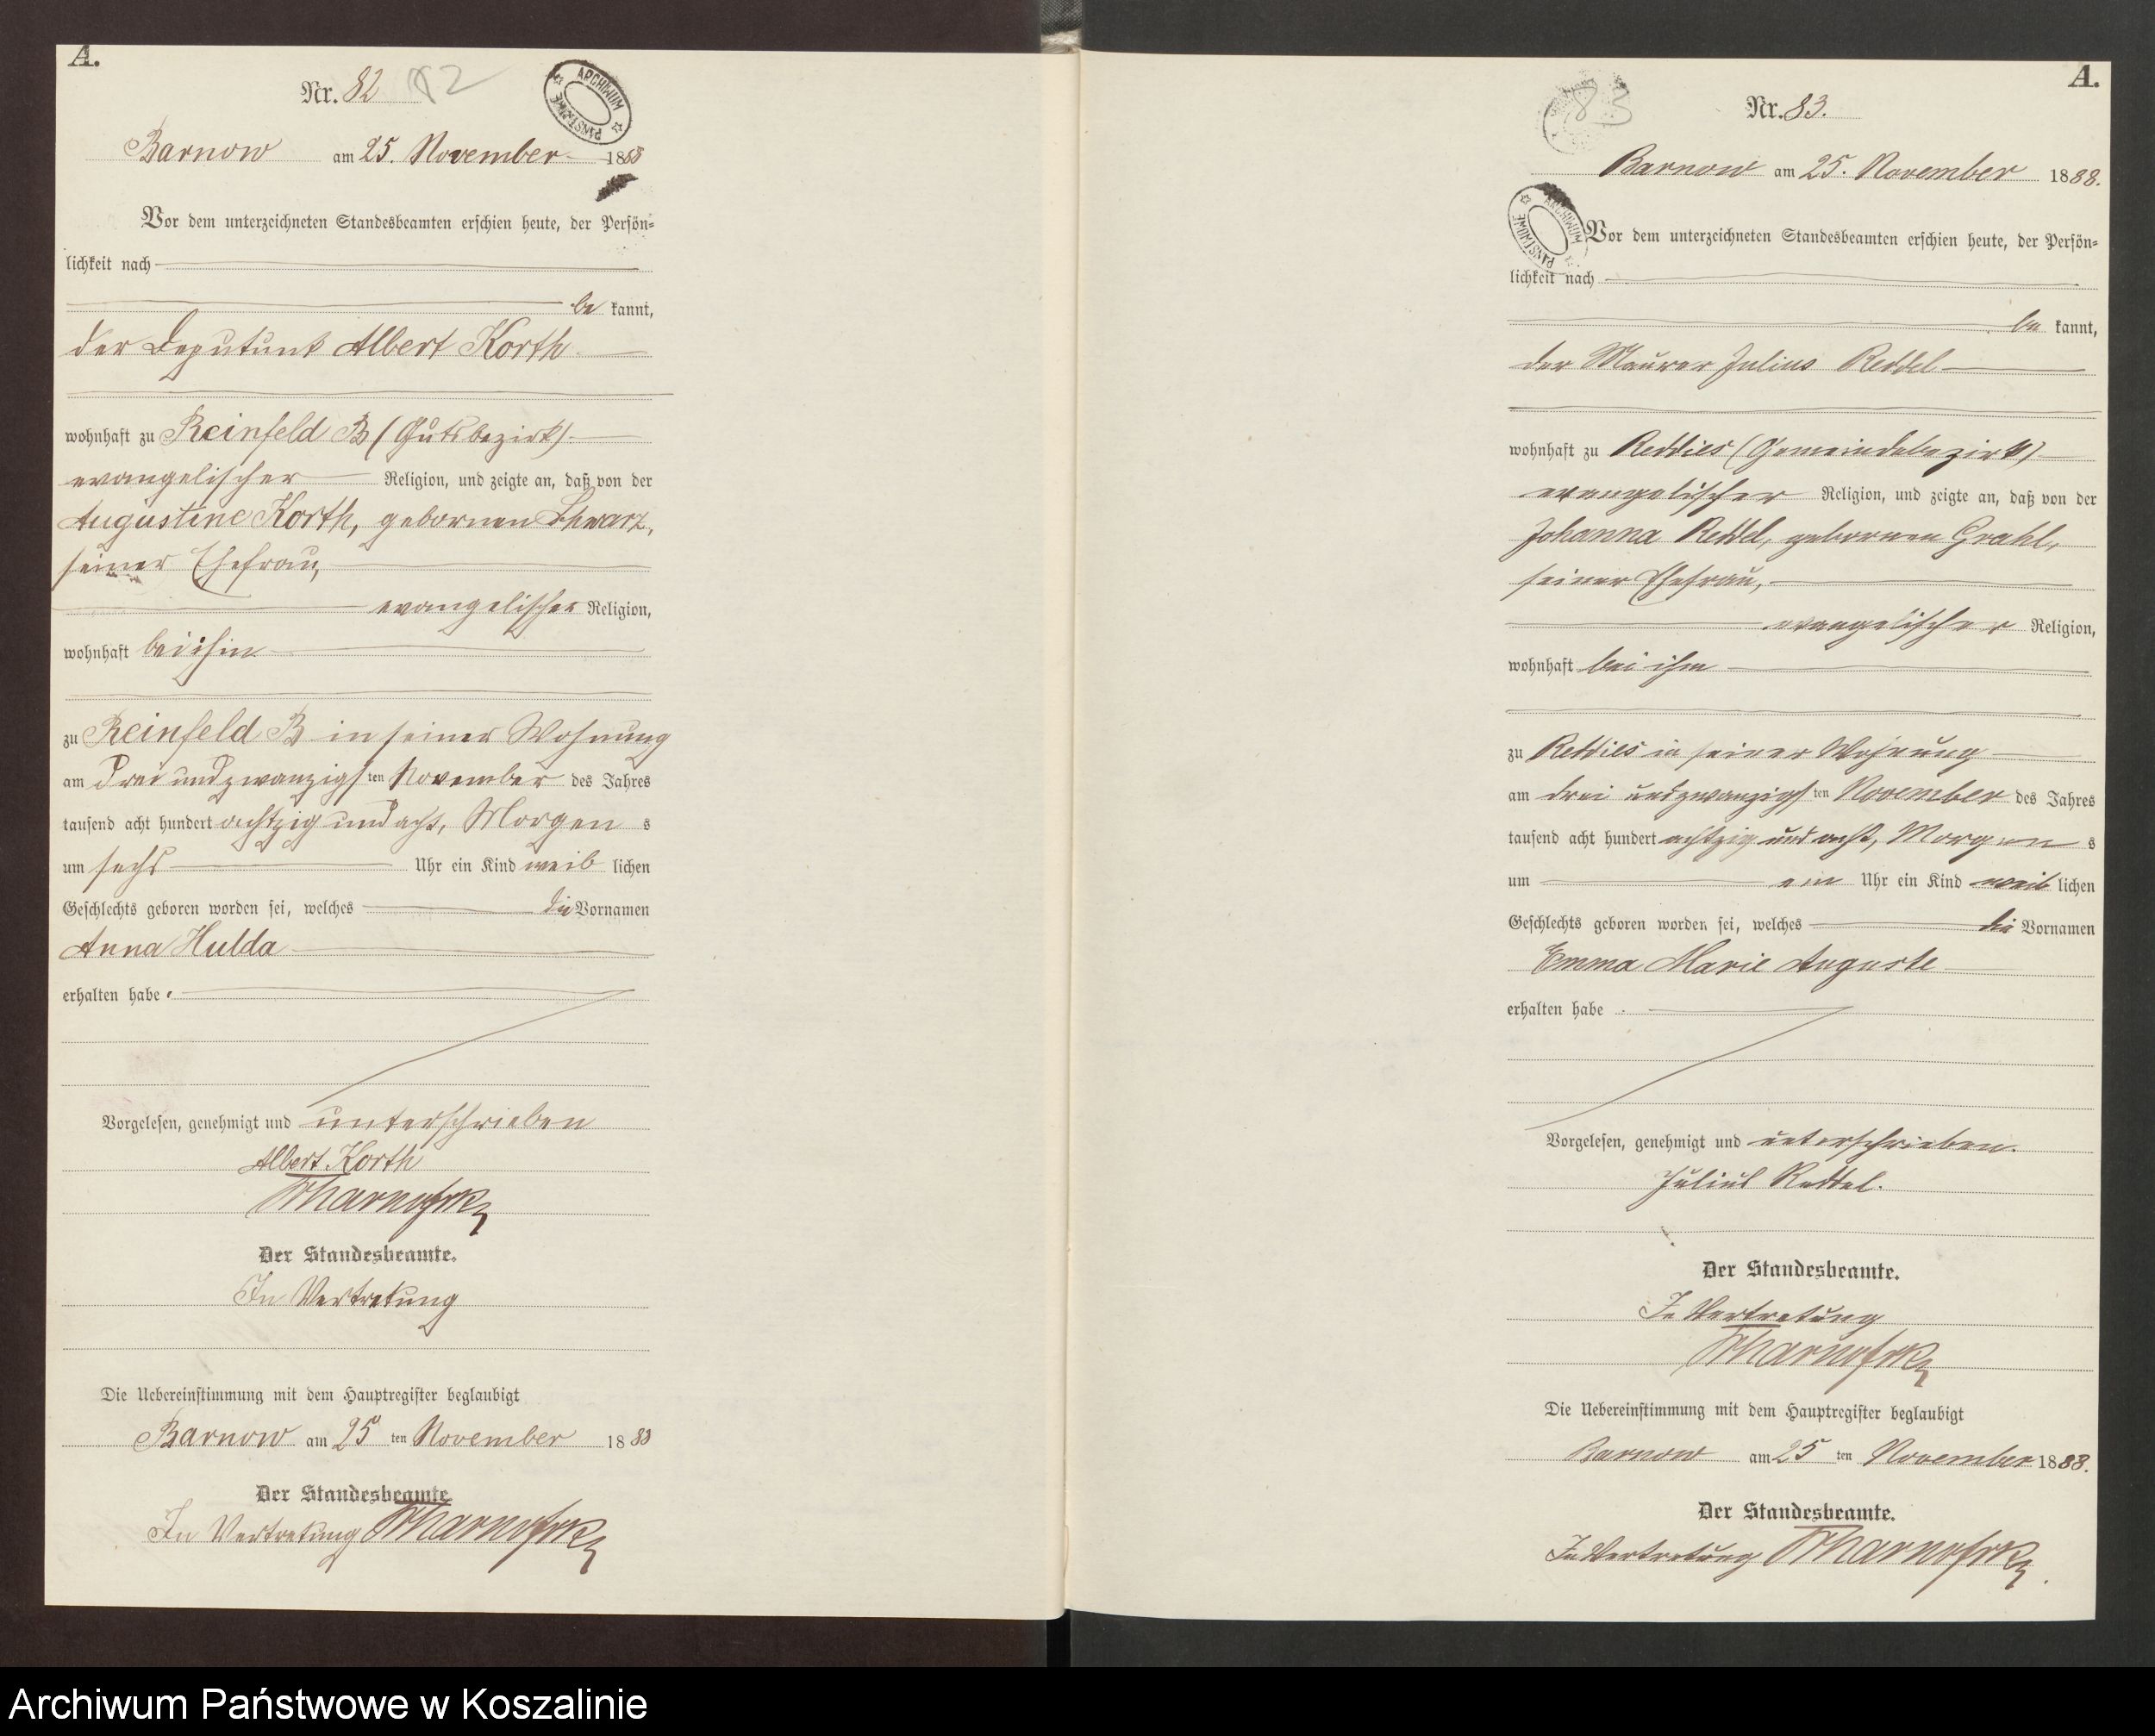 A.
Nr. 82 82
ARCHIWUM PAŃSTWOWE
Barnow am 25. November 1888
Vor dem unterzeichneten Standesbeamten erschien heute, der Persön-
lichkeit nach
be kannt,
der Deputant Albert Korth
wohnhaft zu Reinfeld B (Gutsbezirk)
evangelischer Religion, und zeigte an, daß von der
Augustine Korth, gebornen Schwarz,
seiner Ehefrau,
evangelischer Religion,
wohnhaft bei ihm
zu Reinfeld B in seiner Wohnung
am Drei und zwanzigsten November des Jahres
tausend acht hundert achtzig und acht, Morgen s
um sechs Uhr ein Kind weib lichen
Geschlechts geboren worden sei, welches die Vornamen
Anna Hulda
erhalten habe.
Vorgelesen, genehmigt und unterschrieben
Albert Korth
Der Standesbeamte.
In Vertretung
Die Uebereinstimmung mit dem Hauptregister beglaubigt
Barnow am 25 ten November 1888
Der Standesbeamte
In Vertretung
A.
83 Nr. 83.
Barnow am 25. November 1888.
ARCHIWUM PAŃSTWOWE
Vor dem unterzeichneten Standesbeamten erschien heute, der Persön-
lichkeit nach
be kannt,
der Maurer Julius Reddel
wohnhaft zu Reddies (Gemeindebezirk)
evangelischer Religion, und zeigte an, daß von der
Johanna Reddel, gebornen Grahl,
seiner Ehefrau,
evangelischer Religion,
wohnhaft bei ihm
zu Reddies in seiner Wohnung
am drei und zwanzigsten November des Jahres
tausend acht hundert achtzig und acht, Morgen s
um ein Uhr ein Kind weib lichen
Geschlechts geboren worden sei, welches die Vornamen
Emma Marie Auguste
erhalten habe.
Vorgelesen, genehmigt und unterschrieben.
Julius Reddel.
Der Standesbeamte.
In Vertretung
Die Uebereinstimmung mit dem Hauptregister beglaubigt
Barnow am 25 ten November 1888.
Der Standesbeamte.
In Vertretung
Archiwum Państwowe w Koszalinie